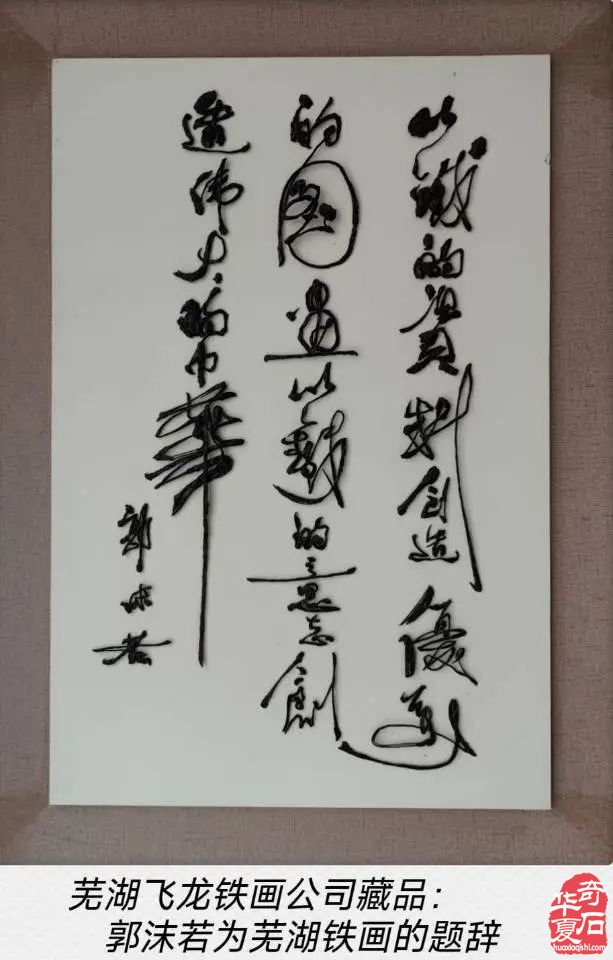 以鐵的資料创造優美
的图畫以鐵的意志創
造伟大的中華
郭沫若
芜湖飞龙铁画公司藏品：
郭沫若为芜湖铁画的题辞
华夏奇石
huaxiaqishi.com